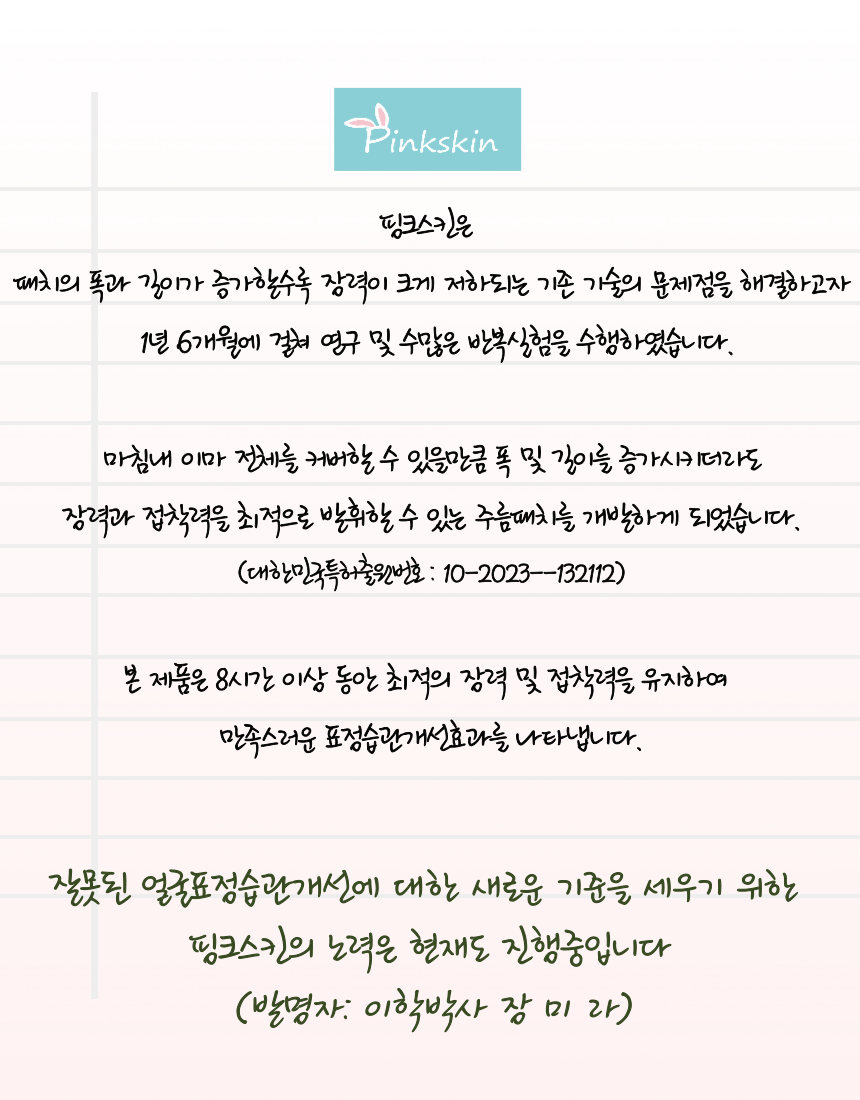 Pinkskin
핑크스킨은
패치의 폭과 길이가 증가할수록 장력이 크게 저하되는 기존 기술의 문제점을 해결하고자
1년 6개월에 걸쳐 연구 및 수많은 반복실험을 수행하였습니다.
마침내 이마 전체를 커버할 수 있을만큼 폭 및 길이를 증가시키더라도
장력과 접착력을 최적으로 발휘할 수 있는 주름패치를 개발하게 되었습니다.
(대한민국특허출원번호 : 10-2023--132112)
본 제품은 8시간 이상 동안 최적의 장력 및 접착력을 유지하여
만족스러운 표정습관개선효과를 나타냅니다.
잘못된 얼굴표정습관개선에 대한 새로운 기준을 세우기 위한
핑크스킨의 노력은 현재도 진행중입니다
(발명자: 이학박사 장 미 라)